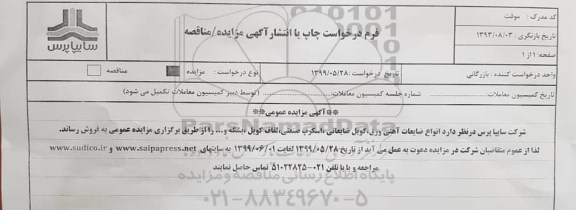 کد مدرک : موقت
تاریخ بازنگری : ۱۳۹۳/۰۸/۰۳
صفحه ۱ از ۱
فرم درخواست چاپ یا انتشار آگهی مزایده/مناقصه
سایپا پرس
واحد درخواست کننده : بازرگانی
تاریخ درخواست : ۱۳۹۹/۰۵/۲۸
نوع درخواست : مزایده مناقصه
تاریخ کمیسیون معاملات............ شماره جلسه کمیسیون معاملات............ (توسط دبیر کمیسیون معاملات تکمیل می شود)
**آگهی مزایده عمومی**
شرکت سایپا پرس درنظر دارد انواع ضایعات آهنی ورق،کویل ضایعاتی،اسکرپ صنعتی،لفاف کویل ،بشکه و... را از طریق برگزاری مزایده عمومی به فروش رساند.
لذا از عموم متقاضیان شرکت در مزایده دعوت به عمل می آید از تاریخ ۱۳۹۹/۰۵/۲۸ لغایت ۱۳۹۹/۰۶/۰۱ به سایتهای www.saipapress.net و www.sudico.ir
مراجعه و یا با تلفن ۰۲۱-۵۱۰۲۲۸۲۵ تماس حاصل نمایند
ParsNamadData
پایگاه اطلاع رسانی مناقصه و مزایده
۰۲۱-۸۸۳۴۹۶۷۰-۵